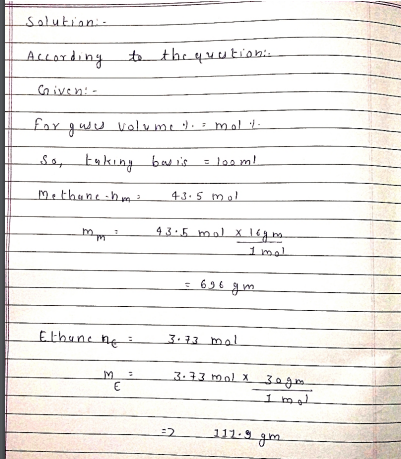 Solution:-
According to the question:.
Given:-
For gases volume %. = mol %.
So, taking basis = 100 ml
Methane - nm = 43.5 mol
mm = 43.5 mol x 16gm
1 mol
= 696 gm
Ethane nE = 3.73 mol
mE = 3.73 mol x 30gm
1 mol
=> 111.9 gm